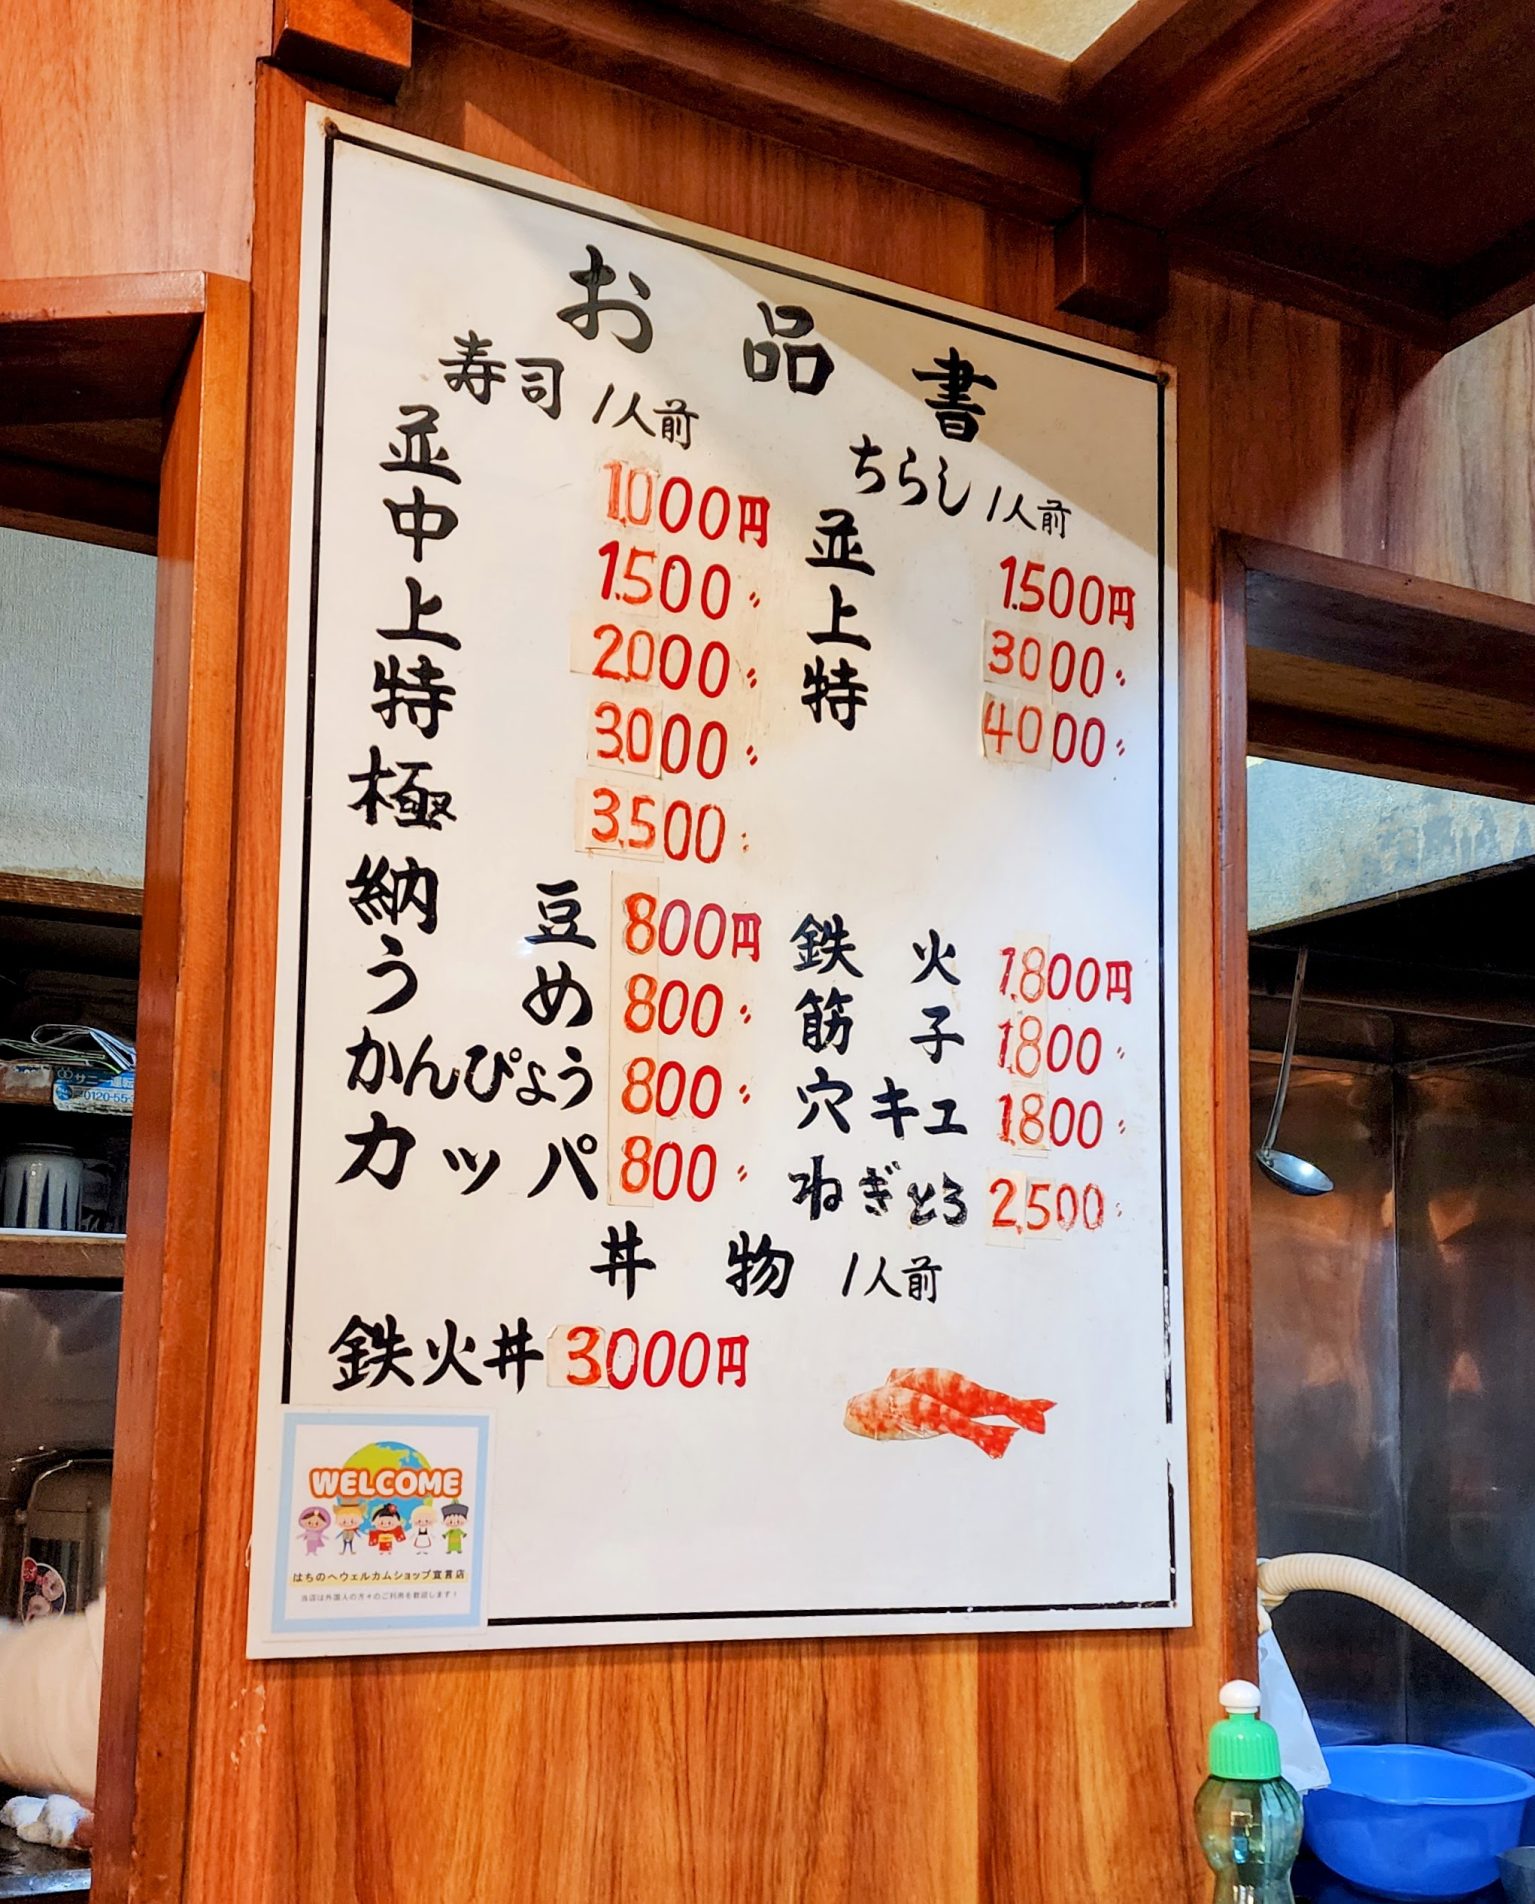 お品書
寿司 1人前
並 1000円
中 1.500 〃
上 2000 〃
特 3.000 〃
極 3.500 〃
ちらし 1人前
並 1.500円
上 3000 〃
特 4000 〃
納豆 800円
うめ 800 〃
かんぴょう 800 〃
カッパ 800 〃
鉄火 1.800円
筋子 1.800 〃
穴キュ 1800 〃
ねぎとろ 2,500 〃
丼物 1人前
鉄火丼 3000円
WELCOME
はちのへウェルカムショップ宣言店
当店は外国人の方々のご利用を歓迎します!
サニー
0120-55-3